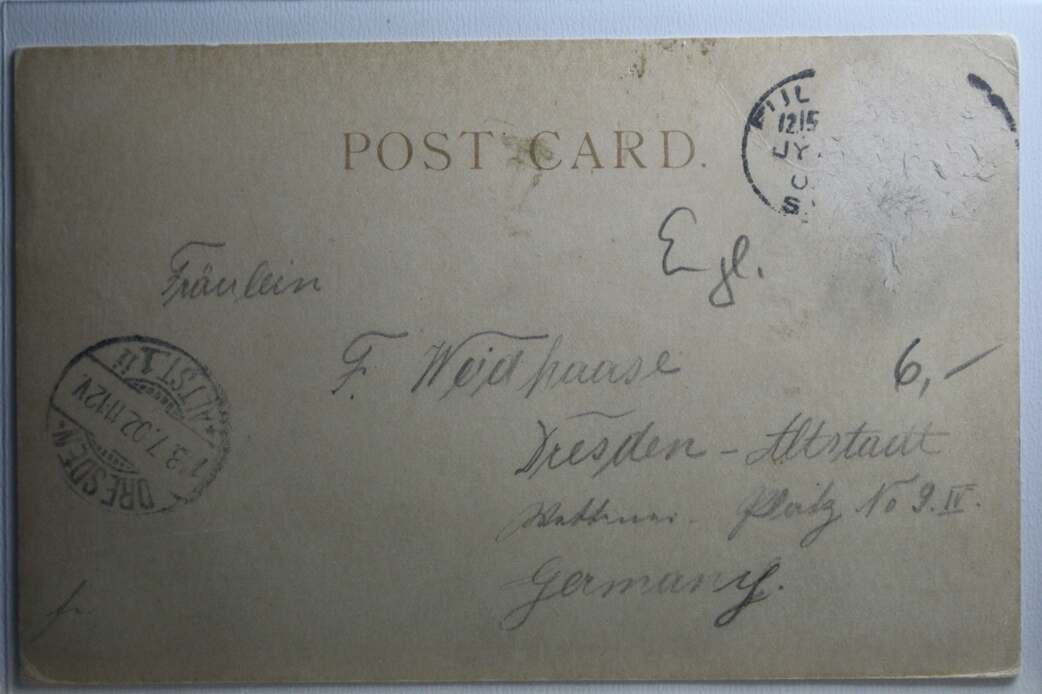 POST CARD.
12 15
JY
0
S
Engl.
Fräulein
F. Weidhaase
6,-
Dresden - Altstadt
Platz No 9. IV.
Germany.
DRESDEN-ALTST. 1
3.7.02.11-12V.